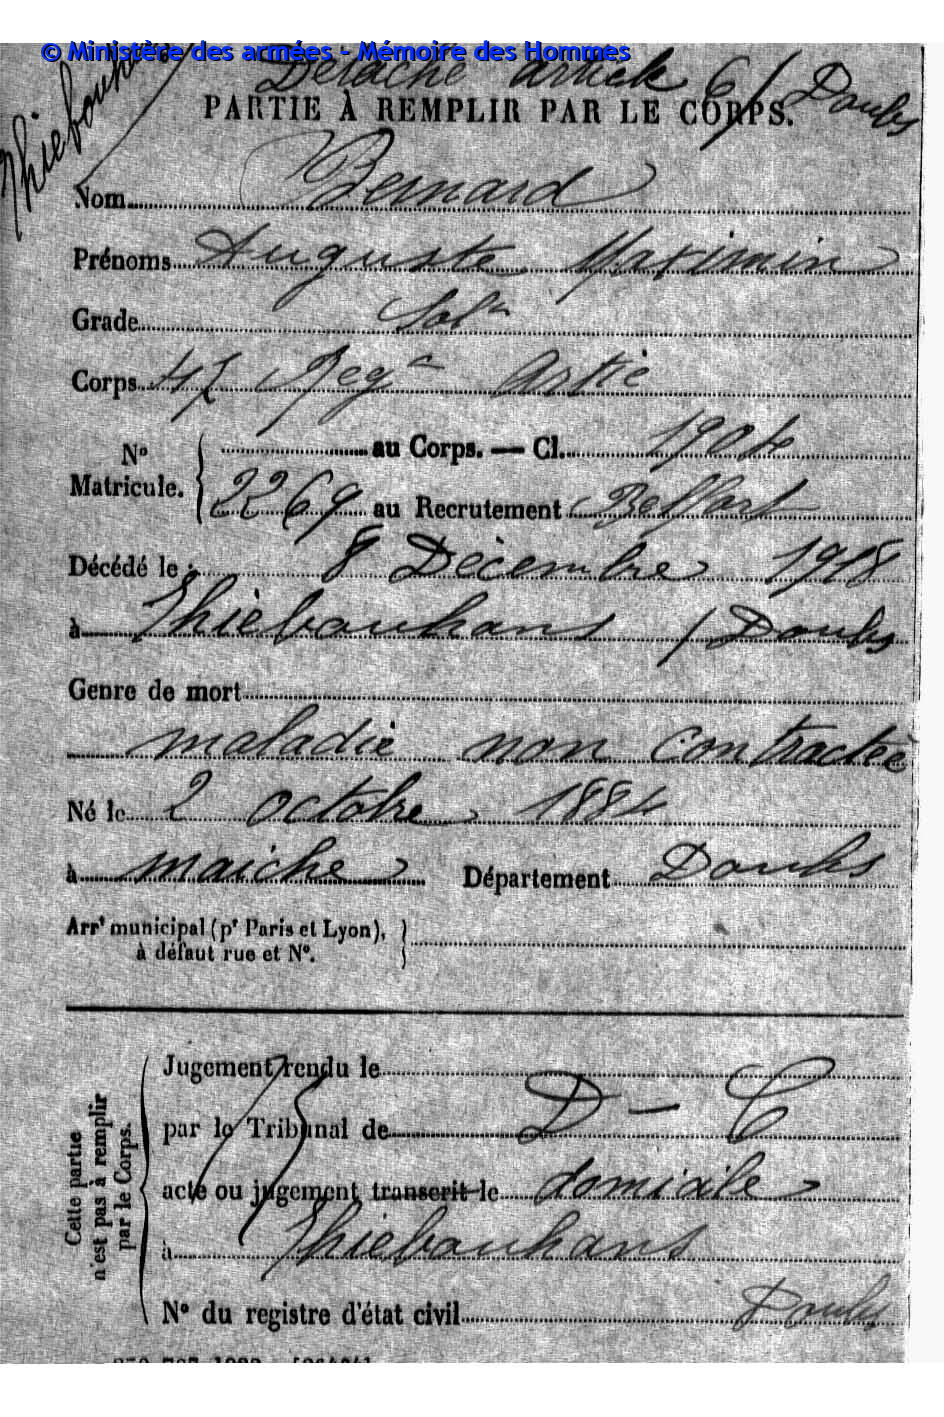 © Ministère des armées - Mémoire des Hommes
Détaché article 6 / Doubs
PARTIE À REMPLIR PAR LE CORPS.
Nom Bernard
Prénoms Auguste Maximin
Grade Solt
Corps 47 Regt Artie
No Matricule. au Corps. — Cl. 1904
2269 au Recrutement Belfort
Décédé le : 8 Décembre 1918
à Thiebouhans / Doubs
Genre de mort
maladie non contractée
Né le 2 octobre 1884
à maiche Département Doubs
Arrt municipal (pr Paris et Lyon),
à défaut rue et No.
Cette partie
n'est pas à remplir
par le Corps.
Jugement rendu le
par le Tribunal de D - C
acte ou jugement transcrit le domicile
à Thiebouhans
No du registre d'état civil Doubs